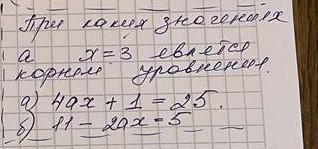 При каких значениях
а x=3 являтся
корнем уравнения.
а) 4ax + 1 = 25.
б) 11 - 2ax = 5